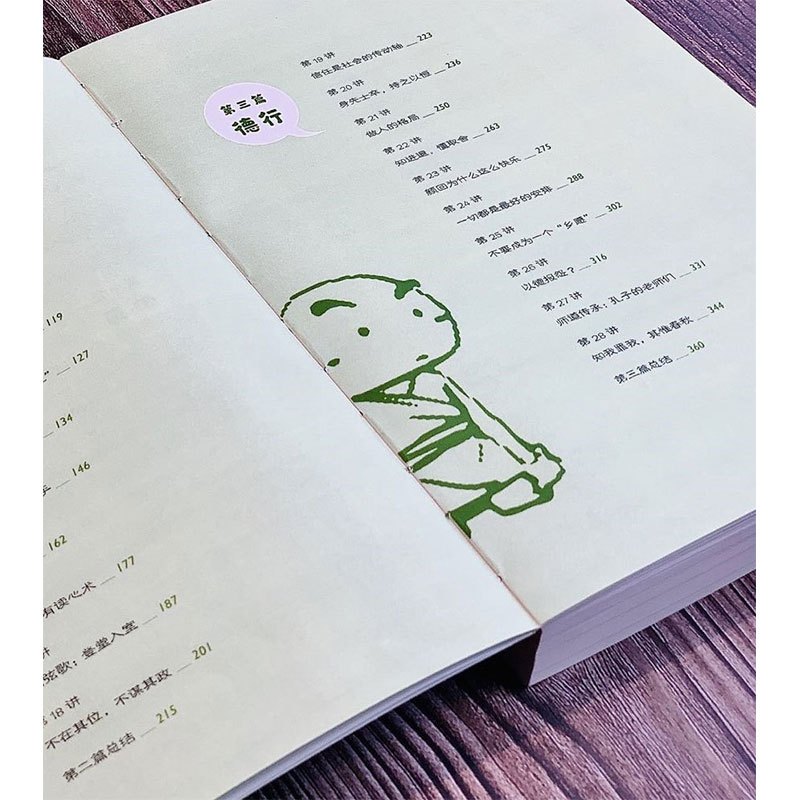 119
127
134
146
162
有读心术 177
讲
弦歌：登堂入室 187
第18讲
不在其位，不谋其政 201
第二篇总结 215
第三篇
德行
第19讲
信任是社会的传动轴 223
第20讲
身先士卒，持之以恒 236
第21讲
做人的格局 250
第22讲
知进退，懂取舍 263
第23讲
颜回为什么这么快乐 275
第24讲
一切都是最好的安排 288
第25讲
不要成为一个“乡愿” 302
第26讲
以德报怨？ 316
第27讲
师道传承：孔子的老师们 331
第28讲
知我罪我，其惟春秋 344
第三篇总结 360